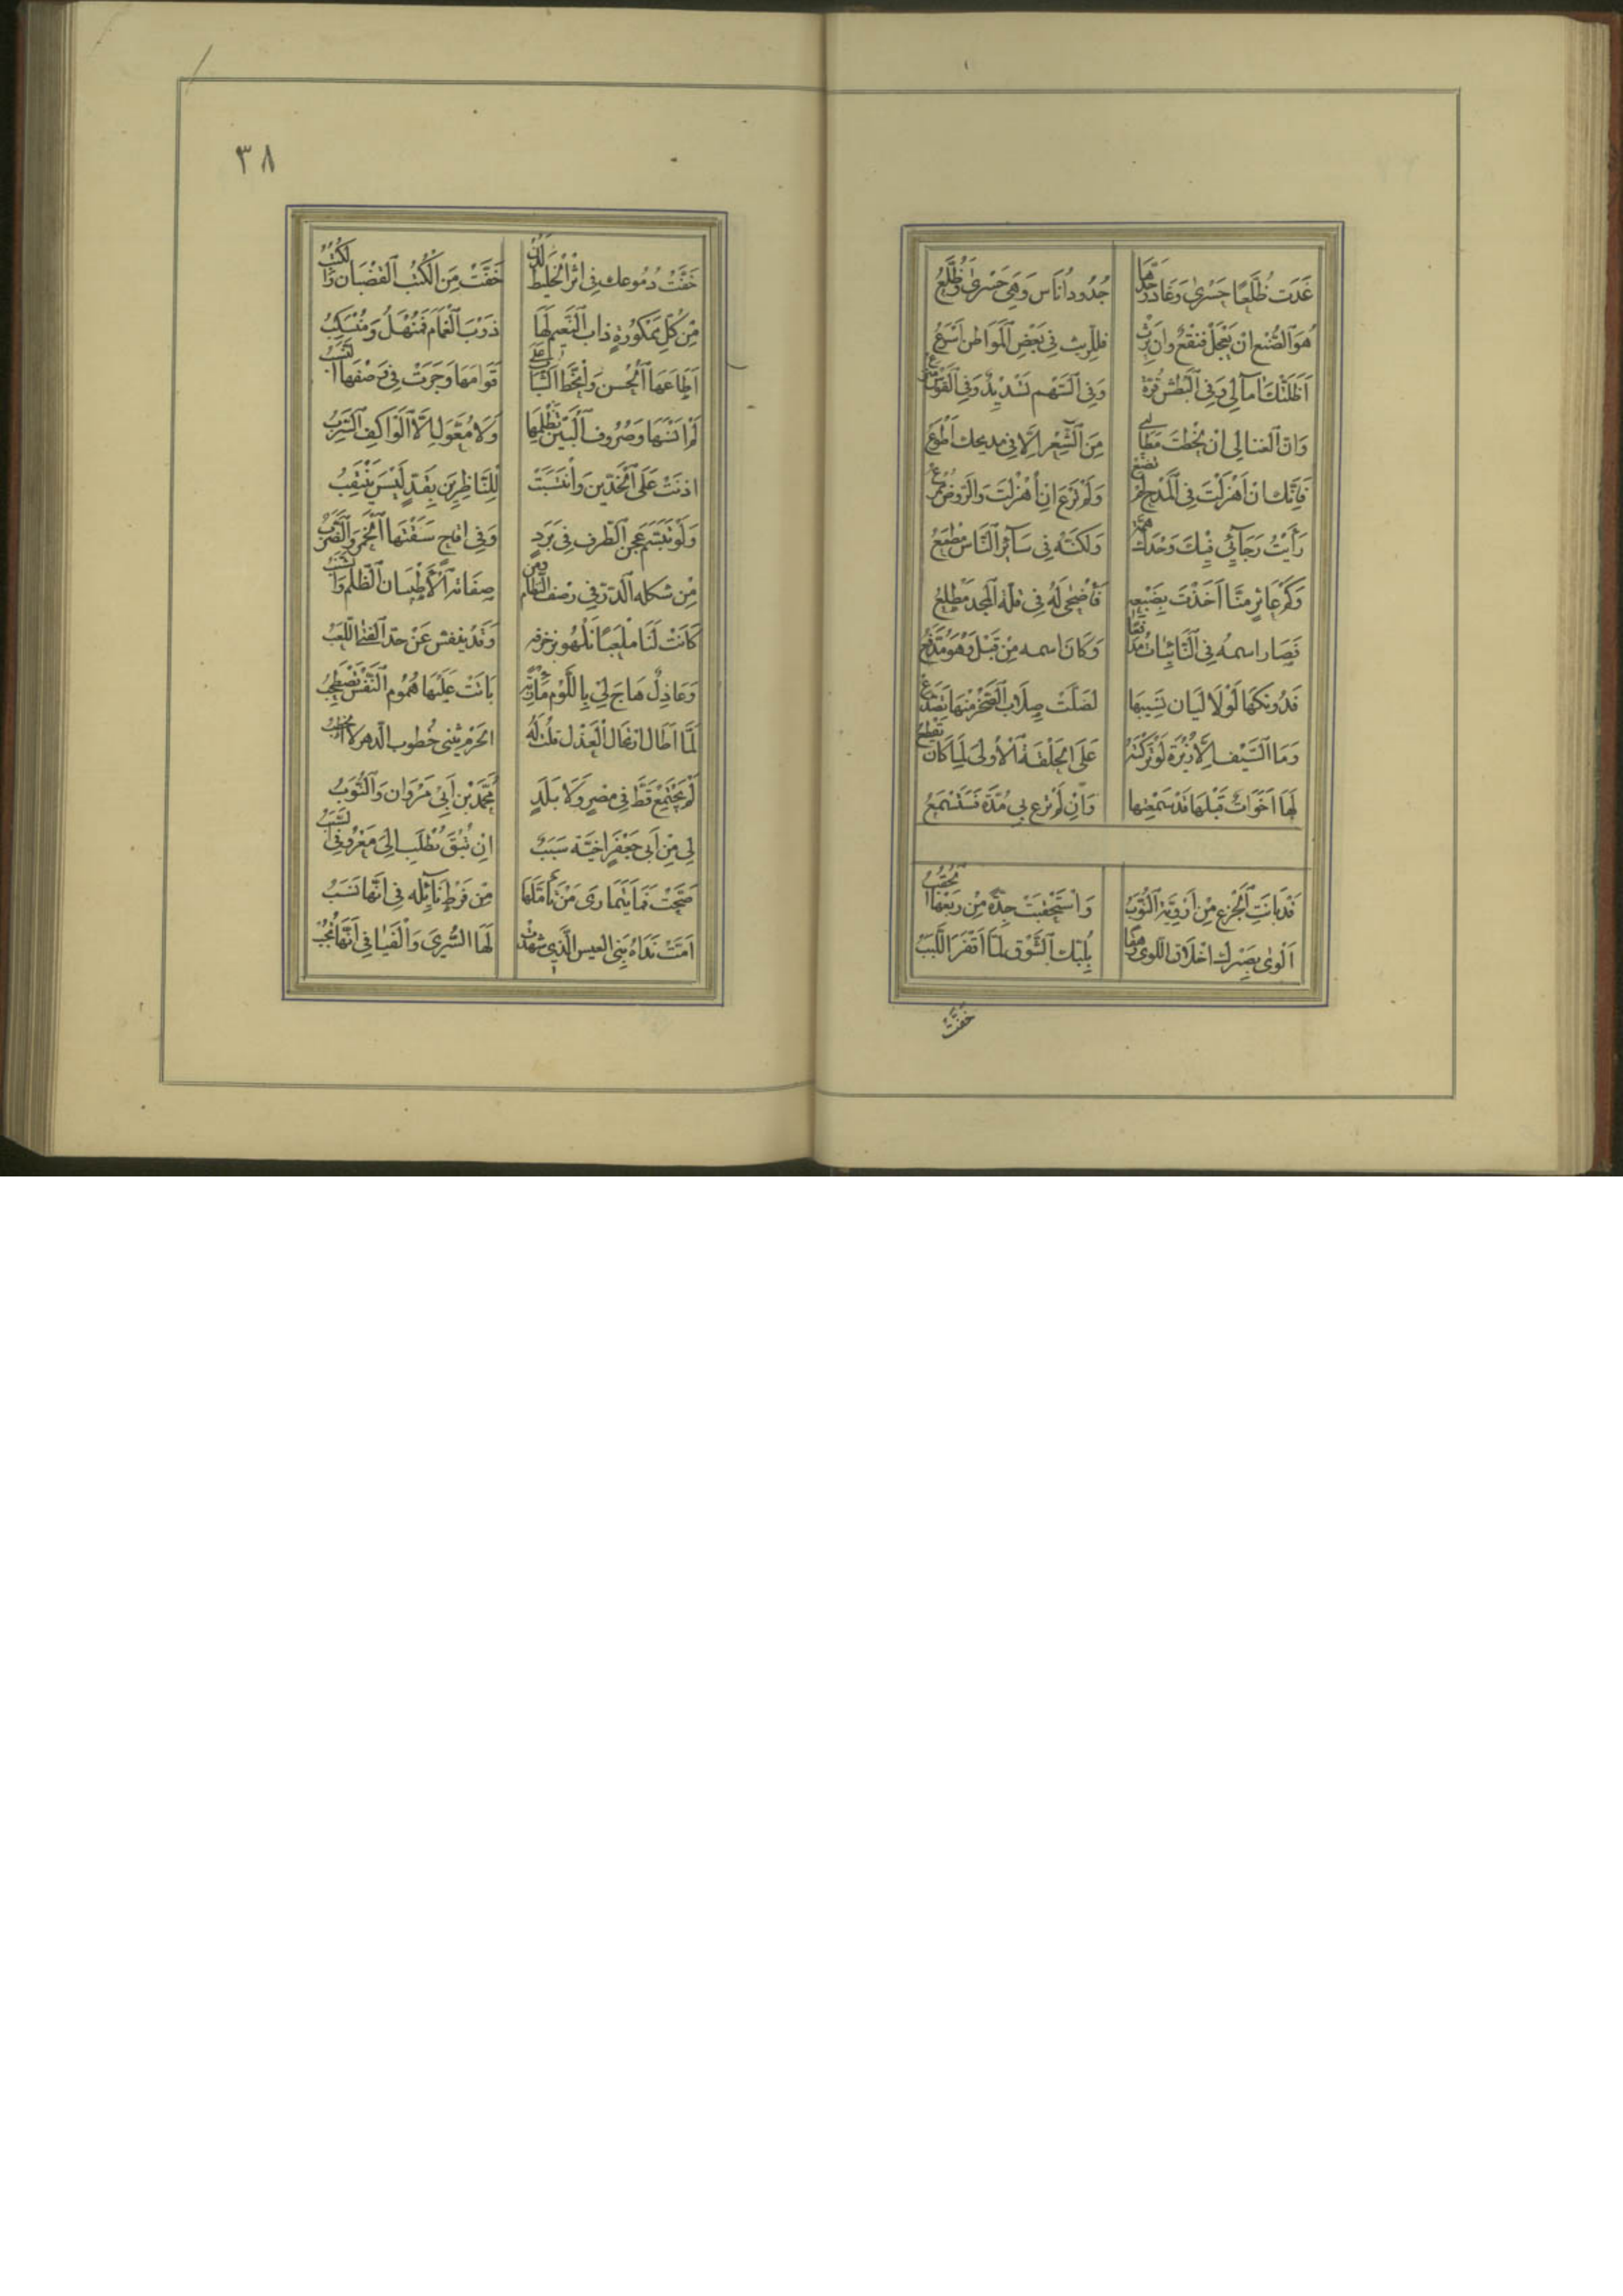 غَدَتْ ظُلَّعًا حَسْرىٰ وَغَادَرَ جَدُّهَا جُدُودَ اُنَاسٍ وَهِيَ حَسْرىٰ وَظُلَّعُ
هُوَ الصُّنْعُ انْ يَعْجَلْ فَنَفْعٌ وَانْ يَرِثْ فللرّيث فِي بَعْضِ الْمَوَاطِن اَسْرَعُ
اَظَلَّتْكَ آمَالِي وَفِي الْبَطْشِ قُوَّة وَفِي السَّهْم تَسْدِيدٌ وَفِي الْقَوْس مَنْزَعُ
وَانَّ الغنا لِي انْ لحظتَ مَطَالِبِي مِنَ الشِّعْرِ الَّا فِي مديحك اَطْوَعُ
فَاِنَّكَ ان اَهْزَلْتَ فِي الْمَدْحِ لَمْ تَضِعْ وَلَمْ تَرْعَ انْ اَهْزَلْتَ وَالرَّوْضُ مُمْرِعُ
رَأَيْتُ رَجَآئِي فِيكَ وَحْدَكَ هِمَّةً وَلَكِنَّهُ فِي سَآئِرِ النَّاس مَطْمَعُ
وَكَمْ عَاثِرٍ مِنَّا اَخَذْتَ بِضَبْعِهِ فَأَضْحىٰ لَهُ فِي قلّة الْمَجْدِ مَطْلِعُ
فَصَار اسمُه فِي النَّائِبَات مُدَافِعًا وَكَانَ اسمه مِنْ قَبْلُ وَهُوَ مُدَفَّعُ
فَدُونَكَهَا لَوْلَا لَيَان نَسِيبِهَا لَظَلَّتْ صِلَابُ الصَّخْرِ مِنْهَا تَصَدَّعُ
وَمَا السَّيْفُ الَّا زُبْرَةٌ لَوْ تَرَكْتَهُ عَلَى الْخِلْقَةِ الْأُولىٰ لَمَا كَانَ يَقْطَعُ
لَهَا اَخَوَاتٌ قَبْلَهَا قَدْ سَمِعْتَهَا وَاِنْ لَمْ تَرُع بِي مُدَّة فَسَتَسْمَعُ
قَدْ بَانَتِ الْجِزْعِ مِنْ اَرْوِيَّة النُّوَبُ وَاسْتَحْقَبَتْ جِدَّةً مِنْ رَبْعِهَا الْحُقُبُ
اَلْوىٰ بِصَبْرِكَ اخْلَاقُ اللّوى وَهَفَا بِلُبِّكَ الشَّوْق لَمَّا اَقْفَرَ اللَّبَبُ
خَفَّتْ
٣٨
خَفَّتْ دُمُوعك فِي اثْرِ الْخَلِيط لَدُنْ خَفَّتْ مِنَ الْكُثُبِ الْقُضْبَان وَالْكُثُبُ
مِنْ كُلِّ مَمْكُورَةٍ ذابَ النَّعِيم لَهَا ذَوْبَ الْغَمَام فَمُنْهَلٌّ وَمُنْسَكِبُ
اَطَاعَهَا الْحُسْنُ وَانْحَطَّ الشَّبَابُ عَلَى قَوَامِهَا وَجَرَتْ فِي وَصْفِهَا النِّسَبُ
لَمْ اَنْسَهَا وَصُرُوفُ الْبَيْنِ تَظْلِمُهَا وَلَا مُعَوَّلَ الَّا الْوَاكِفُ السَّرِبُ
ادنَتْ عَلَى الْخَدَّيْنِ وَانْتَسَبَتْ لِلنَّاظِرِينَ بِقَدٍّ لَيْسَ يَنْتَقِبُ
وَلَوْ تَبَسَّم عُجْنَ الطَّرْف فِي بَرَدٍ وَفِي اقَاحٍ سَقَتْهَا الْخَمْرُ وَالضَّرَبُ
مِنْ شَكْلِهِ الدُّرّ فِي رَصْف النِّظَام وَمِنْ صِفَاتِهِ الْأَطْيَبَان الظَّلْم وَالشَّنَبُ
كَانَتْ لَنَا مَلْعَبًا نَلْهُو بِزُخْرُفِهِ وَقَدْ ينفّس عَنْ جِدِّ الْفَتى اللَّعِبُ
وَعَاذِلٌ هَاجَ لِي بِاللَّوْم مَأْرُبَةً بَاتَتْ عَلَيْهَا هُمُوم النَّفْسِ تَصْطَخِبُ
لَمَّا اَطَالَ ارْتِجَالَ الْعَذْل قلت لَهُ الحَزْم يثني خُطُوبَ الدَّهْرِ لَا الْخُطَبُ
لَمْ يَجْتَمِعْ قَطُّ فِي مِصْرٍ وَلَا بَلَدٍ مُحَمَّدُ بْنُ اَبِي مَرْوَان وَالنُّوَبُ
لِي مِنْ اَبِي جَعْفَرٍ اخِيَّة سَبَبٌ انْ تُبْقَ يُطْلَبْ الَى مَعْرُوفِيَ السَّبَبُ
صَحَّتْ فَمَا يَتَمَارى مَنْ تَأَمَّلَهَا مِنْ فَرْطِ نَائِله فِي اَنَّهَا نَسَبُ
اَمَّتْ نَدَاهُ بِيَ الْعِيس الَّتِي شَهِدَتْ لَهَا السُّرىٰ وَالْفَيَافِي اَنَّهَا نُجُبُ